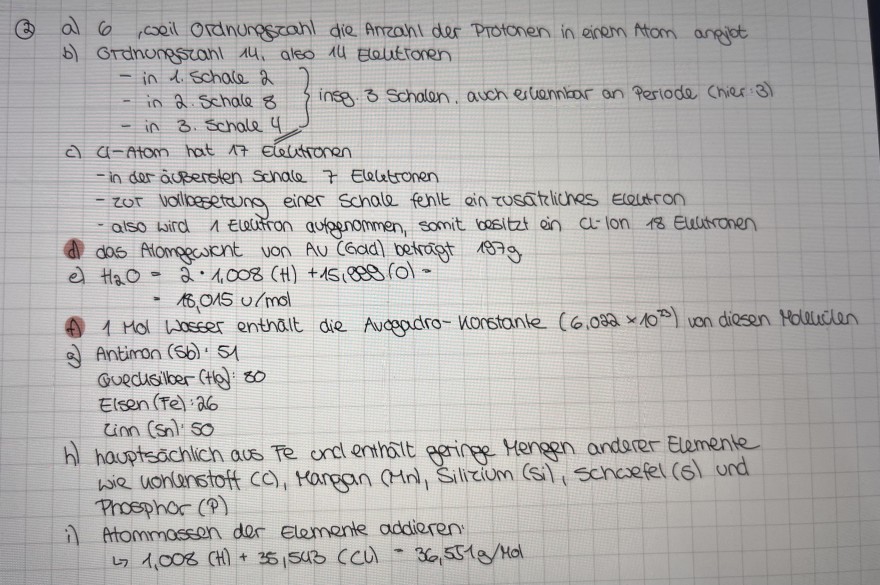 ② a) 6 , weil Ordnungszahl die Anzahl der Protonen in einem Atom angibt
b) Ordnungszahl 14, also 14 Elektronen
- in 1. Schale 2
- in 2. Schale 8 } insg. 3 Schalen, auch erkennbar an Periode (hier: 3)
- in 3. Schale 4
c) Cl-Atom hat 17 Elektronen
- in der äußersten Schale 7 Elektronen
- zur Vollbesetzung einer Schale fehlt ein zusätzliches Elektron
- also wird 1 Elektron aufgenommen, somit besitzt ein Cl-Ion 18 Elektronen
d) das Atomgewicht von Au (Gold) beträgt 197g
e) H₂O = 2 · 1,008 (H) + 15,999 (O) =
= 18,015 u/mol
f) 1 Mol Wasser enthält die Avogadro-Konstante (6.022 × 10²³) von diesen Molekülen
g) Antimon (Sb): 51
Quecksilber (Hg): 80
Eisen (Fe): 26
Zinn (Sn): 50
h) hauptsächlich aus Fe und enthält geringe Mengen anderer Elemente
wie Kohlenstoff (C), Mangan (Mn), Silizium (Si), Schwefel (S) und
Phosphor (P)
i) Atommassen der Elemente addieren:
↳ 1,008 (H) + 35,543 (Cl) = 36,551g/Mol